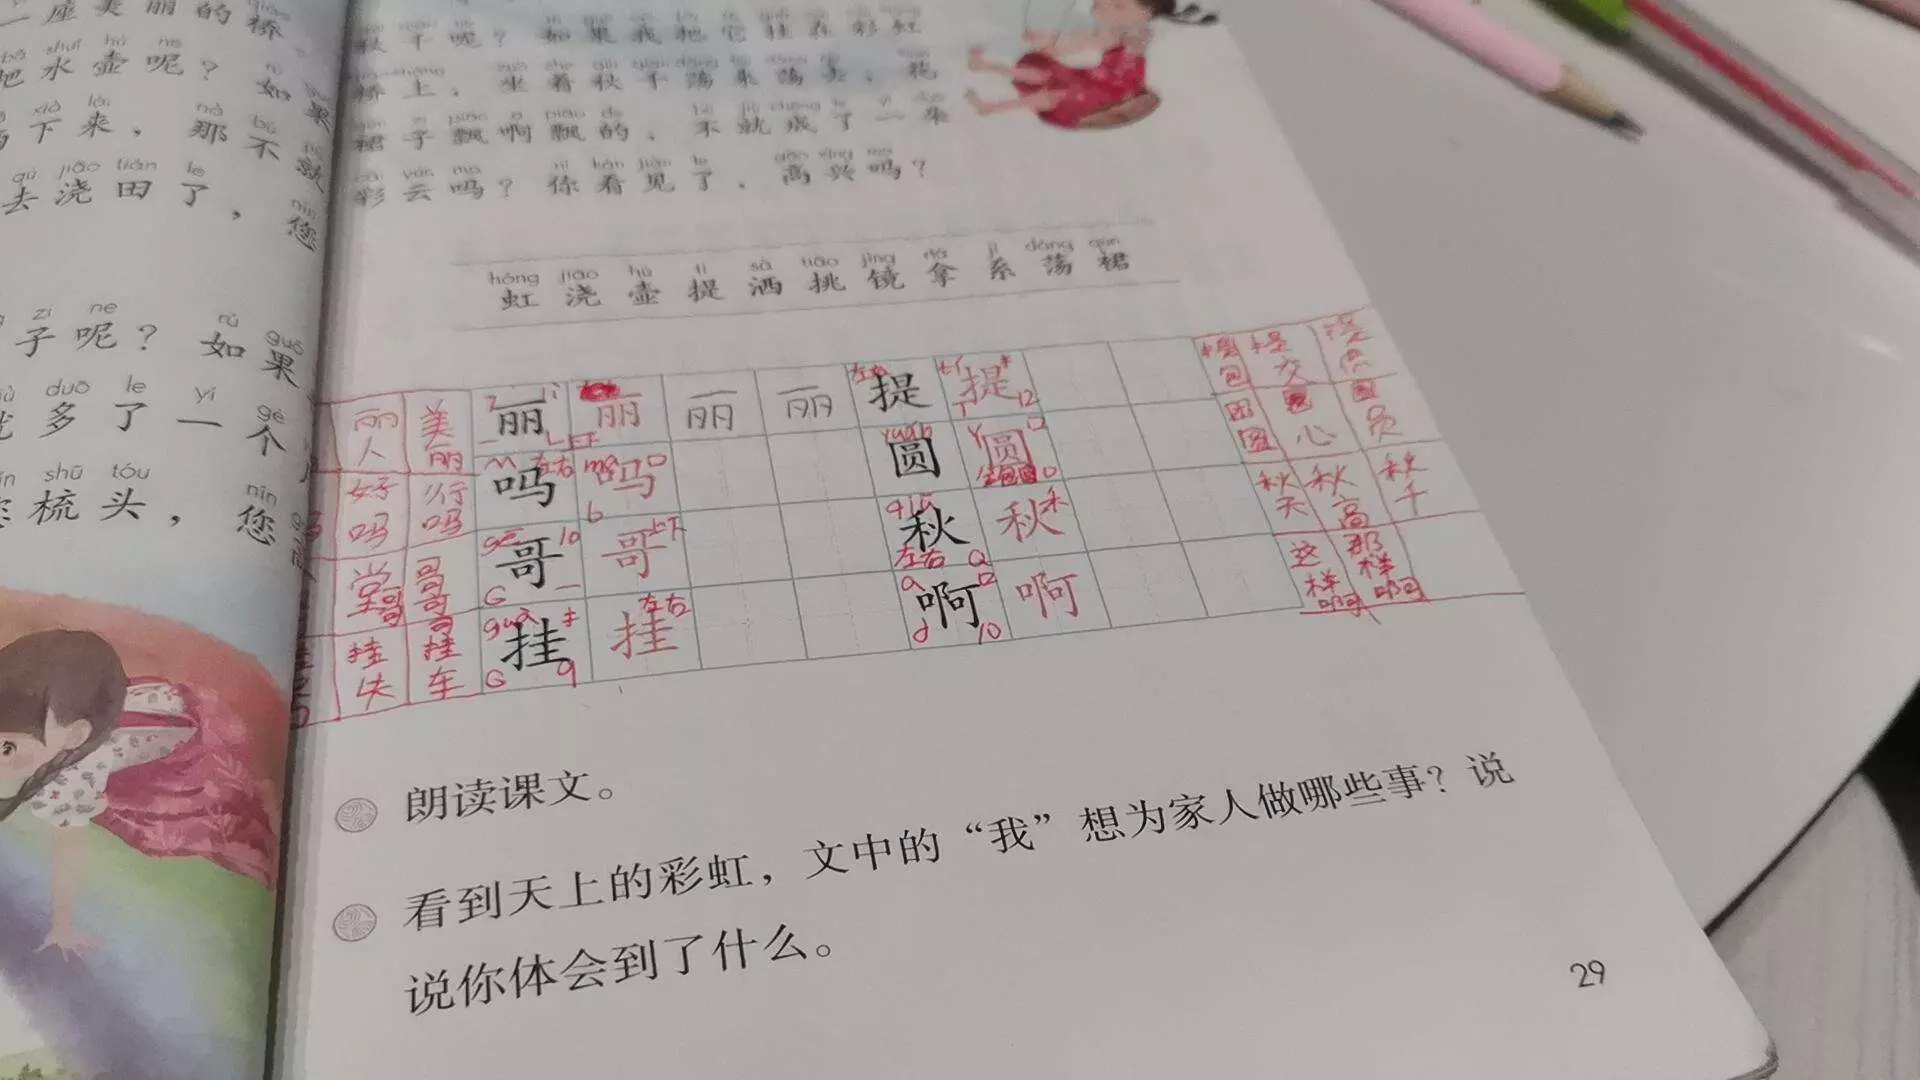 一座美丽的桥
bǎ shuǐ hú ne
把水壶呢？如果
xià lái nà bú
下来，那不就
qù jiāo tián le nín
去浇田了，您
zi ne rú guǒ
子呢？如果
duō le yí gè
就多了一个
shū tóu nín
梳头，您
秋千呢？如果我把它挂在彩虹
桥上，坐着秋千荡来荡去，花
裙子飘啊飘的，不就成了一朵
彩云吗？你看见了，高兴吗？
hóng jiāo hú tí sǎ tiāo jìng ná jì dàng qún
虹浇壶提洒挑镜拿系荡裙
丽人 美丽 丽 丽 丽 丽 提 提
好吗 行吗 吗 吗 圆 圆 圆心
哥 哥 秋 秋 秋天 秋高 秋千
挂 挂 啊 啊 这样啊 那样啊
挂车
朗读课文。
看到天上的彩虹，文中的“我”想为家人做哪些事？说
说你体会到了什么。
29